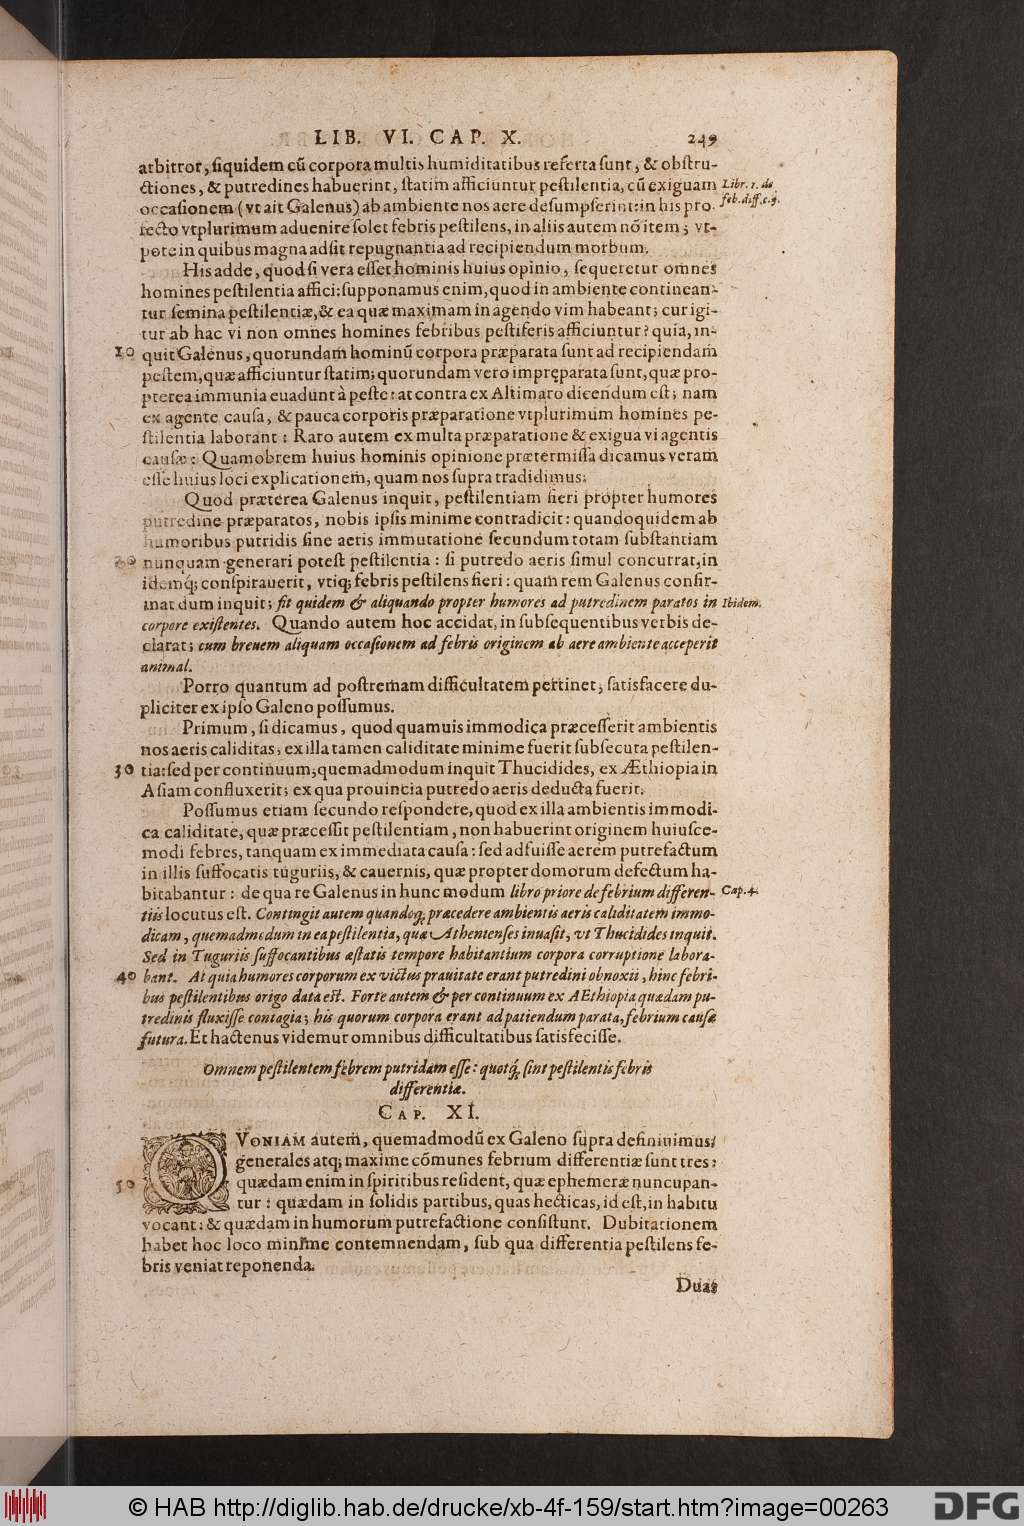 LIB. VI. CAP. X. 249
arbitror, siquidem cũ corpora multis humiditatibus referta sunt, & obstru-
ctiones, & putredines habuerint, statim afficiuntur pestilentia, cũ exiguam
Libr. 1. de
feb. diff. c. 4.
occasionem (vt ait Galenus) ab ambiente nos aere desumpserint: in his pro
fecto vtplurimum aduenire solet febris pestilens, in aliis autem nō item; vt-
pote in quibus magna adsit repugnantia ad recipiendum morbum.
His adde, quod si vera esset hominis huius opinio, sequeretur omnes
homines pestilentia affici: supponamus enim, quod in ambiente continean-
tur semina pestilentiæ, & ea quæ maximam in agendo vim habeant; cur igi-
tur ab hac vi non omnes homines febribus pestiferis afficiuntur? quia, in-
10 quit Galenus, quorundam hominũ corpora præparata sunt ad recipiendam
pestem, quæ afficiuntur statim; quorundam vero impręparata sunt, quæ pro-
pterea immunia euadunt à peste: at contra ex Altimaro dicendum est; nam
ex agente causa, & pauca corporis præparatione vtplurimum homines pe-
stilentia laborant: Raro autem ex multa præparatione & exigua vi agentis
causæ: Quamobrem huius hominis opinione prætermissa dicamus veram
esse huius loci explicationem, quam nos supra tradidimus.
Quod præterea Galenus inquit, pestilentiam fieri propter humores
putredine præparatos, nobis ipsis minime contradicit: quandoquidem ab
humoribus putridis sine aeris immutatione secundum totam substantiam
20 nunquam generari potest pestilentia: si putredo aeris simul concurrat, in
idemq́; conspirauerit, vtiq; febris pestilens fieri: quam rem Galenus confir-
mat dum inquit; fit quidem & aliquando propter humores ad putredinem paratos in
Ibidem.
corpore existentes. Quando autem hoc accidat, in subsequentibus verbis de-
clarat; cum breuem aliquam occasionem ad febris originem ab aere ambiente acceperit
animal.
Porro quantum ad postremam difficultatem pertinet, satisfacere du-
pliciter ex ipso Galeno possumus.
Primum, si dicamus, quod quamuis immodica præcesserit ambientis
nos aeris caliditas, ex illa tamen caliditate minime fuerit subsecuta pestilen-
30 tia: sed per continuum, quemadmodum inquit Thucidides, ex Æthiopia in
Asiam confluxerit; ex qua prouincia putredo aeris deducta fuerit.
Possumus etiam secundo respondere, quod ex illa ambientis immodi-
ca caliditate, quæ præcessit pestilentiam, non habuerint originem huiusce-
modi febres, tanquam ex immediata causa: sed adfuisse aerem putrefactum
in illis suffocatis tuguriis, & cauernis, quæ propter domorum defectum ha-
bitabantur: de qua re Galenus in hunc modum libro priore de febrium differen-
Cap. 4.
tiis locutus est. Contingit autem quandoq; præcedere ambientis aeris caliditatem immo-
dicam, quemadmodum in ea pestilentia, quæ Athenienses inuasit, vt Thucidides inquit.
Sed in Tuguriis suffocantibus æstatis tempore habitantium corpora corruptione labora-
40 bant. At quia humores corporum ex victus prauitate erant putredini obnoxii, hinc febri-
bus pestilentibus origo data est. Forte autem & per continuum ex AEthiopia quædam pu-
tredinis fluxisse contagia; his quorum corpora erant ad patiendum parata, febrium causæ
futura. Et hactenus videmur omnibus difficultatibus satisfecisse.
Omnem pestilentem febrem putridam esse: quotq́; sint pestilentis febris
differentiæ.
CAP. XI.
QVONIAM autem, quemadmodũ ex Galeno supra definiuimus,
generales atq; maxime cōmunes febrium differentiæ sunt tres:
50 quædam enim in spiritibus resident, quæ ephemeræ nuncupan-
tur: quædam in solidis partibus, quas hecticas, id est, in habitu
vocant: & quædam in humorum putrefactione consistunt. Dubitationem
habet hoc loco minime contemnendam, sub qua differentia pestilens fe-
bris veniat reponenda.
Duas
© HAB http://diglib.hab.de/drucke/xb-4f-159/start.htm?image=00263
DFG